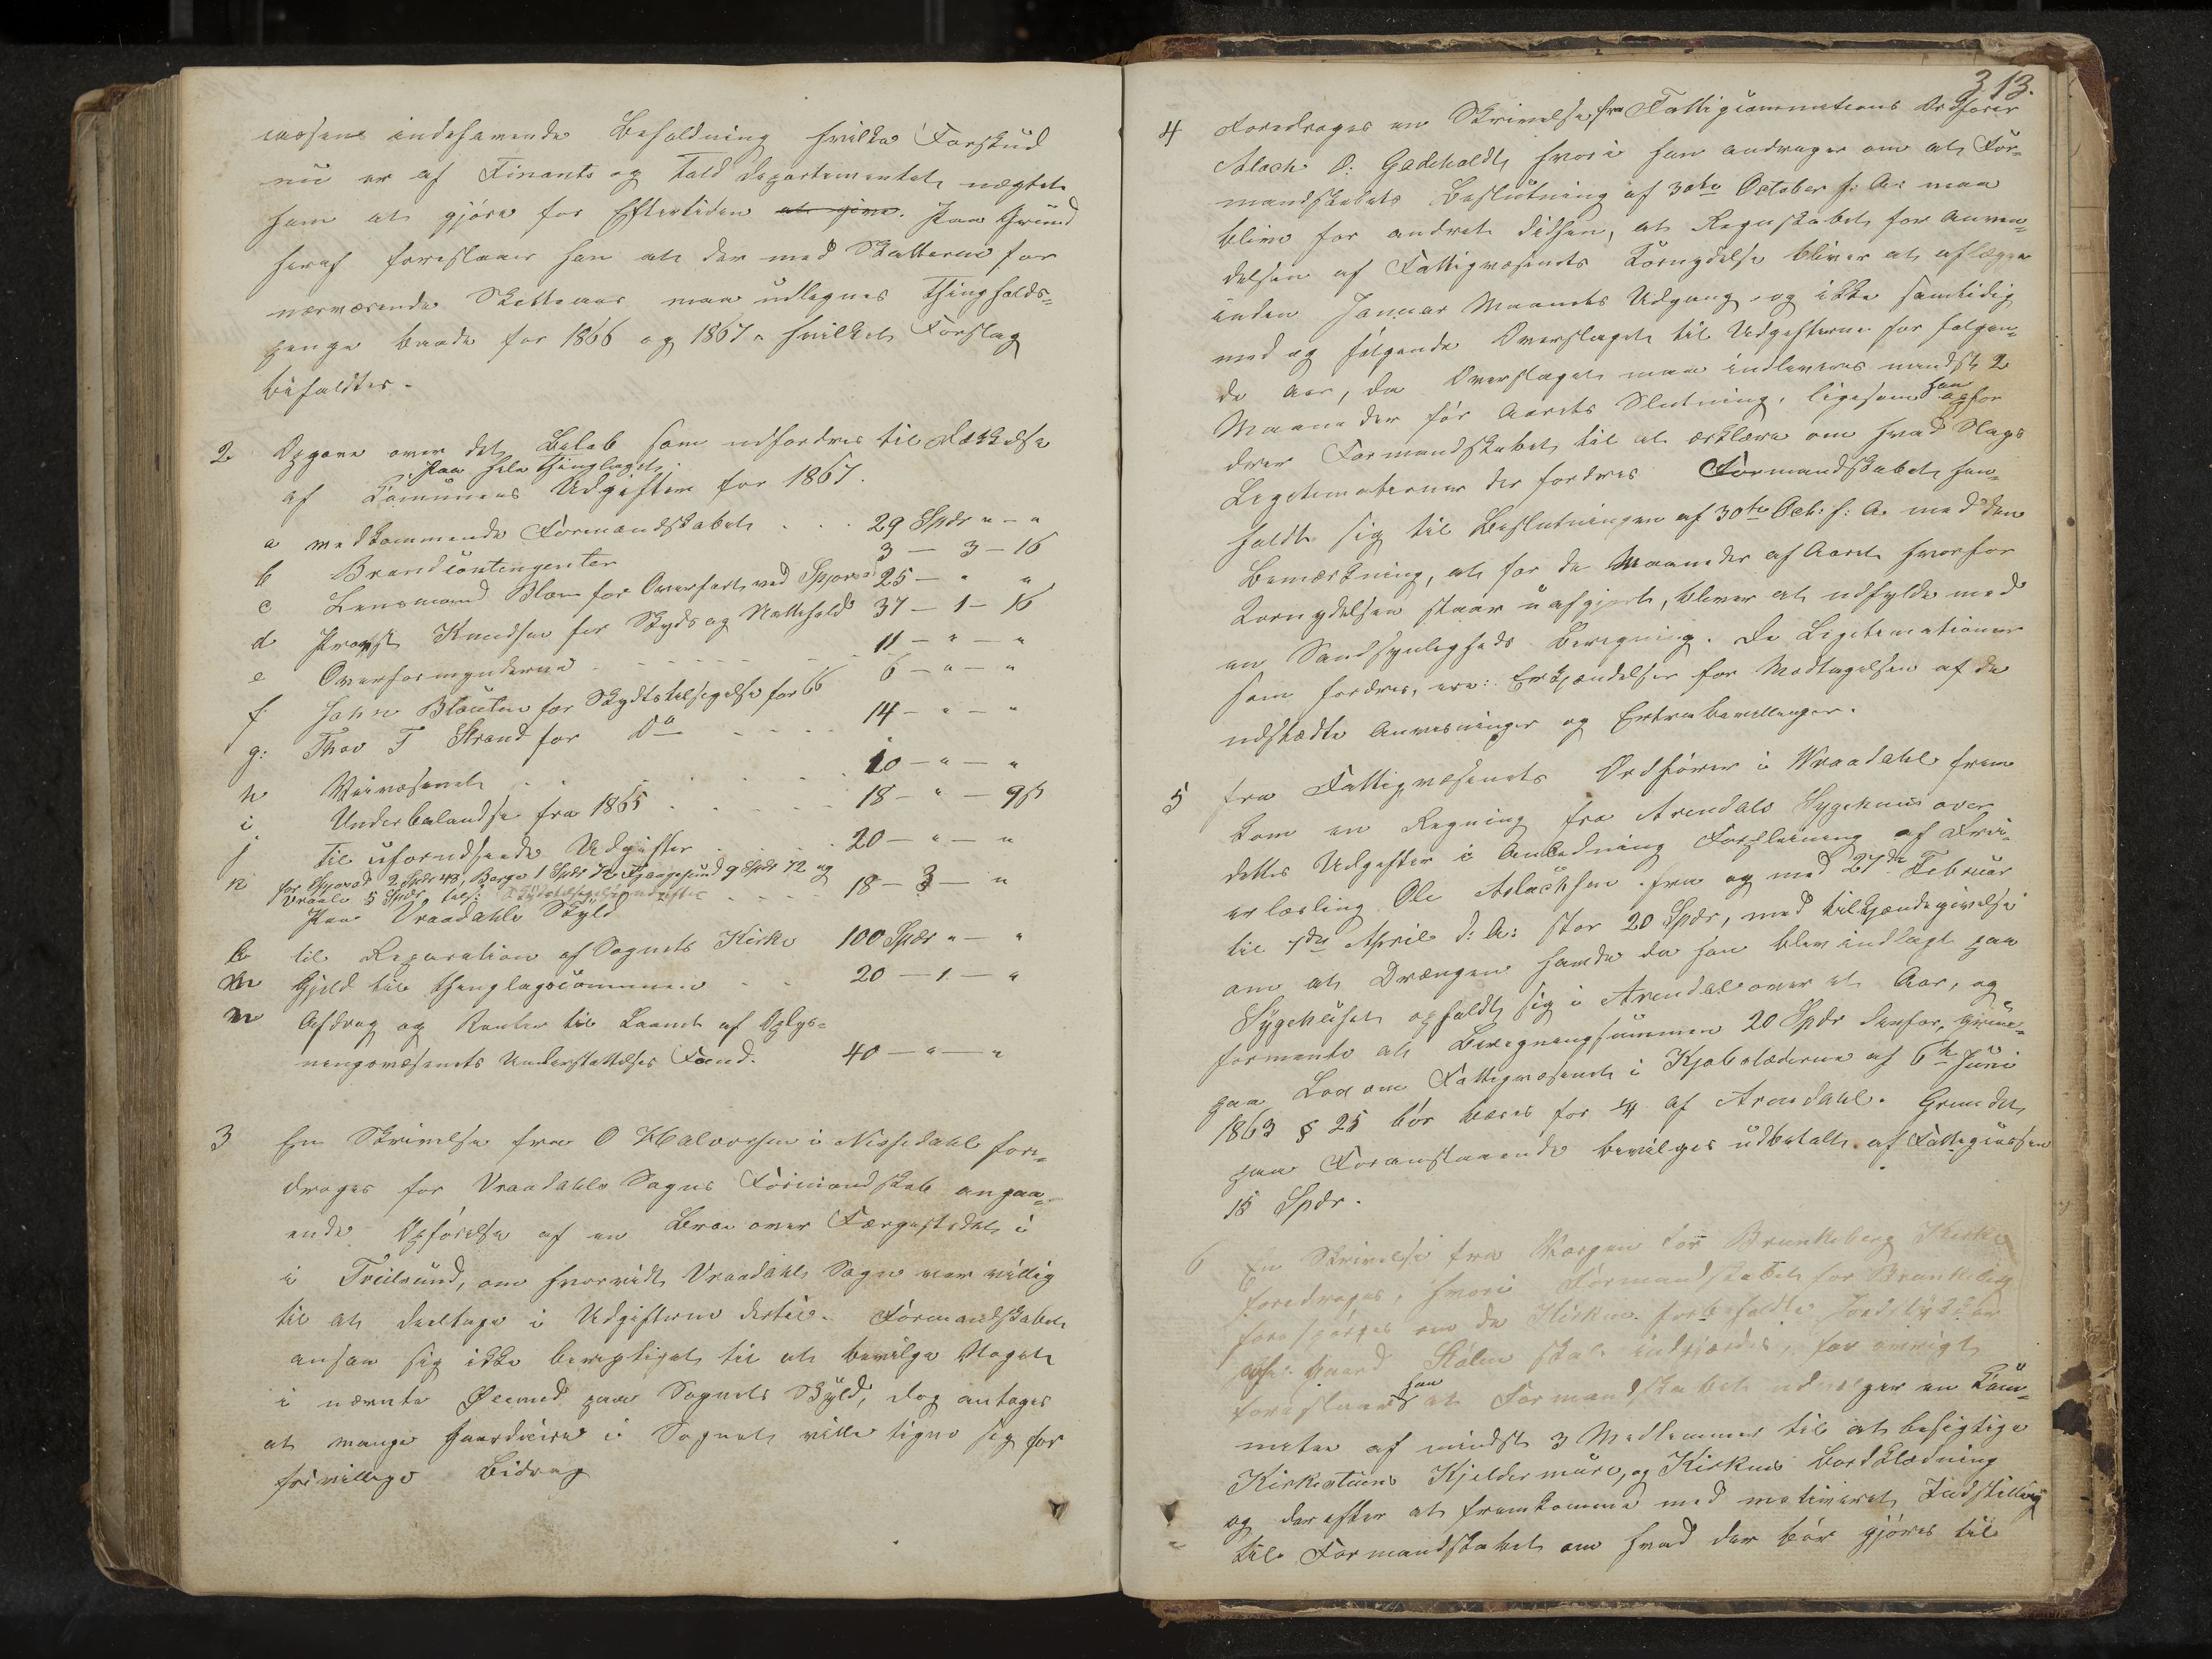 cassens indehavende Beholdning hvilke Forskud
nu er af Finants og Told Departementet nægtet
ham at gjøre for Eftertiden at give. Paa Grund
heraf foreslaaer han at der med Skatterne for
nærværende Skatteaar maa udlignes Thingholds=
penge baade for 1866 og 1867 - hvilket Forslag
bifaldtes.
2 Opgave over det Beløb som udfordres til Dækkelse
paa hele Thinglaget
af Communens Udgifter for 1867.
a vedkommende Formandskabet . . . 29 Spdr " - "
b Brandcontingenter 3 - 3 - 16
c Lensmand Blom for Overfart ved Spjosod 25 - " "
d Provst Knudsen for Skyds og Natteholds 37 - 1 - 16
e Overformynderne . . . . . . 11 - " - "
f John Blauten for Skydstilsigelse for 66 6 - " - "
g: Thov T Strand for Do . . . . 14 - " - "
h Veivæsenet . . . . . . 10 - " - "
i Underbalandse fra 1865 . . . . . 18 - " - 9 ß
j til uforudseede Udgifter . . . . 20 - " - "
k for Spjosod 2 Spdr 48, Berge 1 Spdr 72 9 Spdr 72 og
Vraale 5 Spdr, . . . . 18 - 3 - "
Paa Vraadahls Skyld
l til Reparation af Sognets Kirke 100 Spdr " - "
m Gjeld til thinglagscommunen . . 20 - 1 - "
n Afdrag og Renter til Laanet af Oplys=
ningsvæsenets Understøttelses Fond. 40 - " - "
3 En Skrivelse fra O Halvorsen i Nissedahl fore=
drages for Vraadahls Sogns Formandskab angaa=
ende Opførelse af en Broe over Færgestedet i
i Treilsund, om hvorvidt Vraadahls Sogn var villig
til at deeltage i Udgifterne dertil. Formandskabet
ansaa sig ikke berettiget til at bevilge Noget
i nævnte Øiemed paa Sognets Skyld, dog antages
at mange Gaardeiere i Sognet ville tegne sig for
frivillige Bidrag
313.
4 Foredroges en Skrivelse fra Fattigcommissions Ordfører
Aslack O: Gadeholdt, hvori han andrager om at For=
mandskabets Beslutning af 30te October f: A: maa
blive for andret didhen, at Regnskabet for Anven=
delsen af Fattigvæsenets Kornydelse bliver at aflægge
inden Januar Maaneds Udgang og ikke samtidig
med og følgende Overslaget til Udgifterne for følgen=
de Aar, da Overslaget maa indleveres mindst 2
Maaneder før Aarets Slutning, ligesom han opfor
drer Formandskabet til at erklære om hvad Slags
Legitimationer der fordres Formandskabet hen=
holdt sig til Beslutningen af 30te Oct: f: A. med den
Bemærkning, at for de Maaneder af Aaret hvorfor
Kornydelsen staar uafgjort, bliver at udfylde med
en Sandsynligheds Beregning. De Legitimationer
som fordres, ere: Erkjændelser for Modtagelsen af de
udstædte Anvisninger og Extrabevillinger.
5 fra Fattigvæsenets Ordfører i Wraadahl frem
kom en Regning fra Arendals Sygehuus over
dettes Udgifter i Anledning Forpleining af
lærling Ole Aslachsen fra og med 27de Februar
til 7de April d: A: stor 20 Spdr, med tilkjændegivelse
om at Drængen havde da han blev indlagt paa
Sygehuset opholdt sig i Arendal over et Aar, og
formente at Beregningsummen 20 Spdr derfor,
paa Lov om Fattigvæsenet i Kjøbstæderne af 6te Juni
1863 § 25 bør bæres for 1/4 af Arendahl. Grundet
paa Foranstaaende bevilges udbetalt af Fattigcassen
15 Spdr.
6 En Skrivelse fra Værgen for Brunkeberg Kirke
foredroges, hvori Formandskabet for Brunkeberg
forespørges om de Kirken forbeholdte Jordstykker
Gaard Stolen skal indgjærdes, for øvrigt
foreslaaer han at Formandskabet udvælger en Com=
mitee af mindst 3 Medlemmer til at besigtige
Kirkestuens Kjeldermure, og Kirkens Bordklædning
og derefter at fremkomme med motiveret Indstilling
til Formandskabet om hvad der bør gjøres til